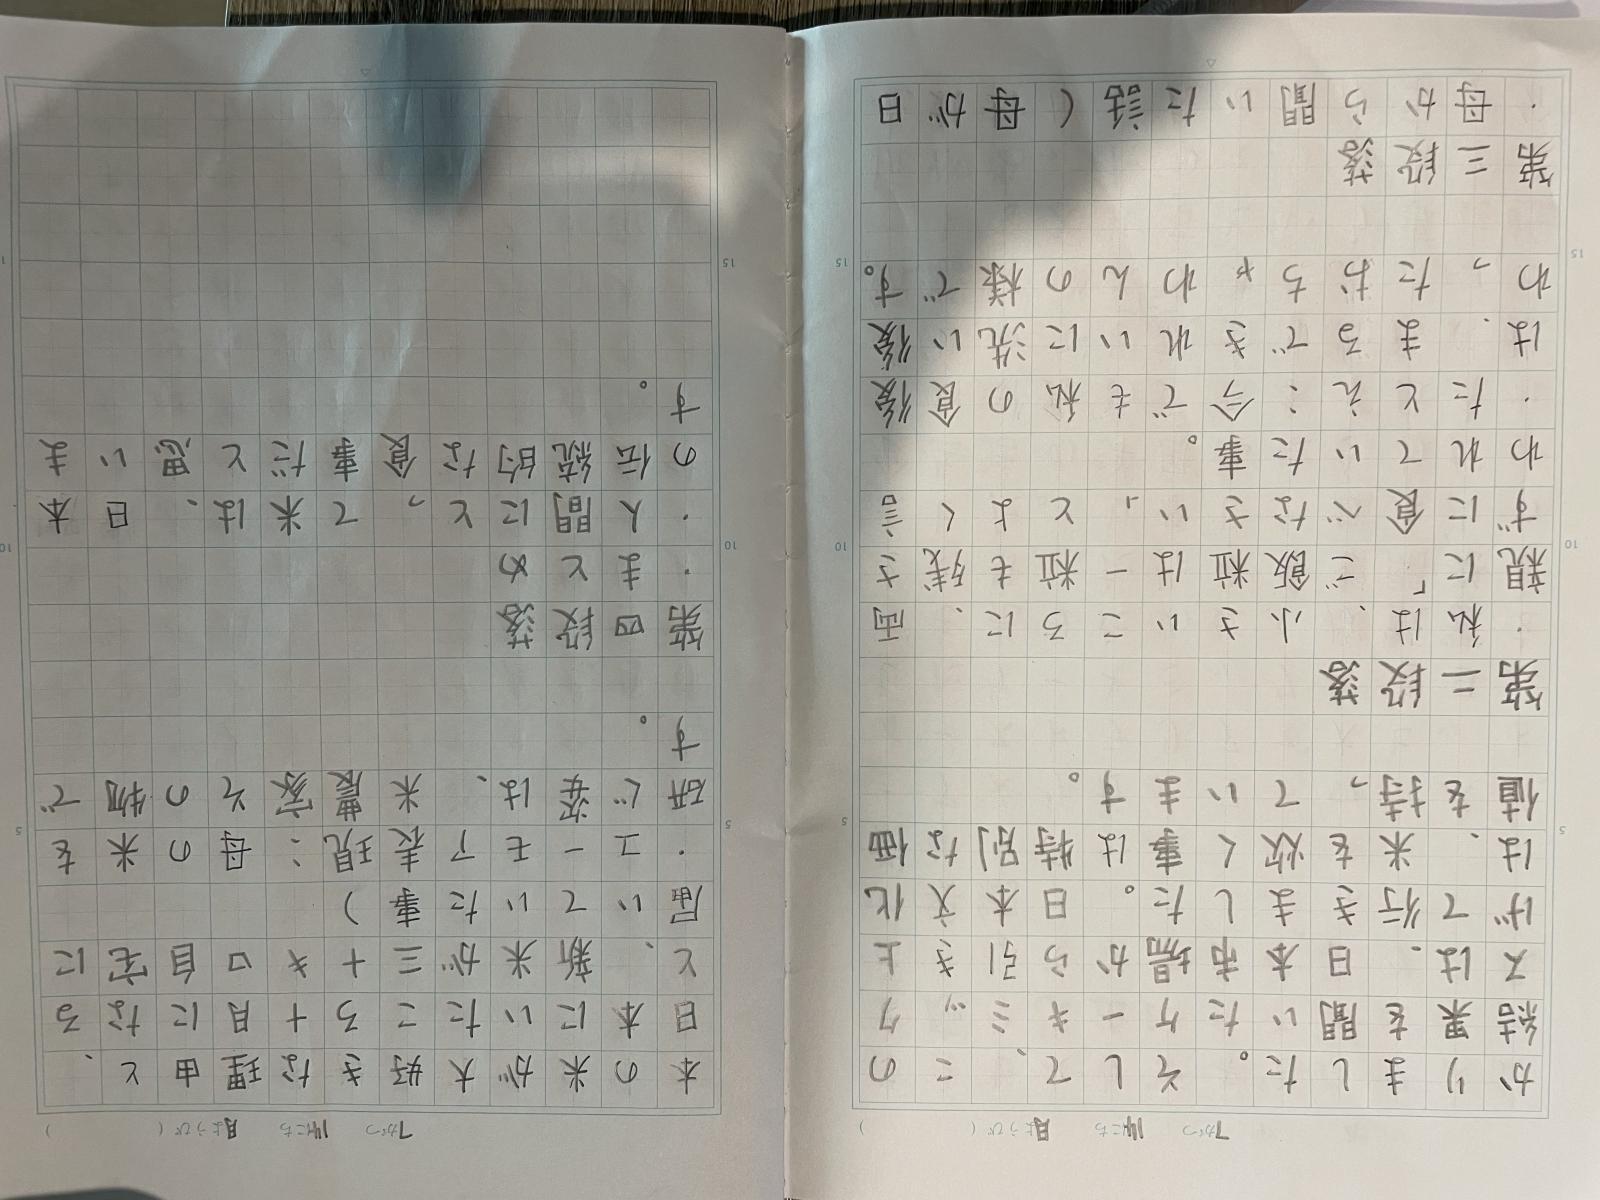 7がつ 14にち 月ようび ( )
かりました。そして、この
結果を聞いたケーキミック
スは、日本市場から引き上
げて行きました。日本文化
は、米を炊く事は特別な価
値を持っています。
第二段落
・私は、小さいころに、両
親に「ご飯粒は一粒も残さ
ずに食べなさい」とよく言
われていた事。
・たとえ：今でも私の食後
は、まるできれいに洗い後
わったおちゃわんの様です。
第三段落
・母から聞いた話(母が日
7がつ 14にち 月ようび ( )
本の米が大好きな理由と、
日本にいたころ十月になる
と、新米が三十キロ自宅に
届いていた事)
・ユーモア表現：母の米を
研ぐ姿は、米農家その物で
す。
第四段落
・まとめ
・人間にとって米は、日本
の伝統的な食事だと思いま
す。